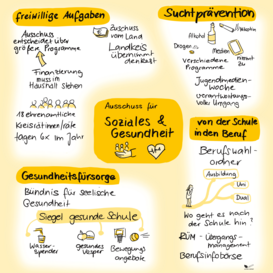 freiwillige Aufgaben
Ausschuss
entscheidet über
größere Programme
Zuschuss
vom Land
Landkreis
übernimmt
den Rest
Finanzierung
muss im
Haushalt stehen
18 ehrenamtliche
Kreisrätinnen/räte
tagen 6x im Jahr
Suchtprävention
Alkohol
Nikotin
Drogen
Medien
nimmt
zu
Verschiedene
Programme
Jugendmedien-
woche
verantwortungs-
voller Umgang
Ausschuss für
Soziales &
Gesundheit
von der Schule
in den Beruf
Berufswahl-
ordner
Ausbildung
Uni
Dual
Wo geht es nach
der Schule hin?
RÜM - Übergangs-
management
Berufsinfobörse
Gesundheitsfürsorge
Bündnis für seelische
Gesundheit
Siegel gesunde Schule
Wasser-
spender
gesundes
Vesper
Bewegungs
angebote